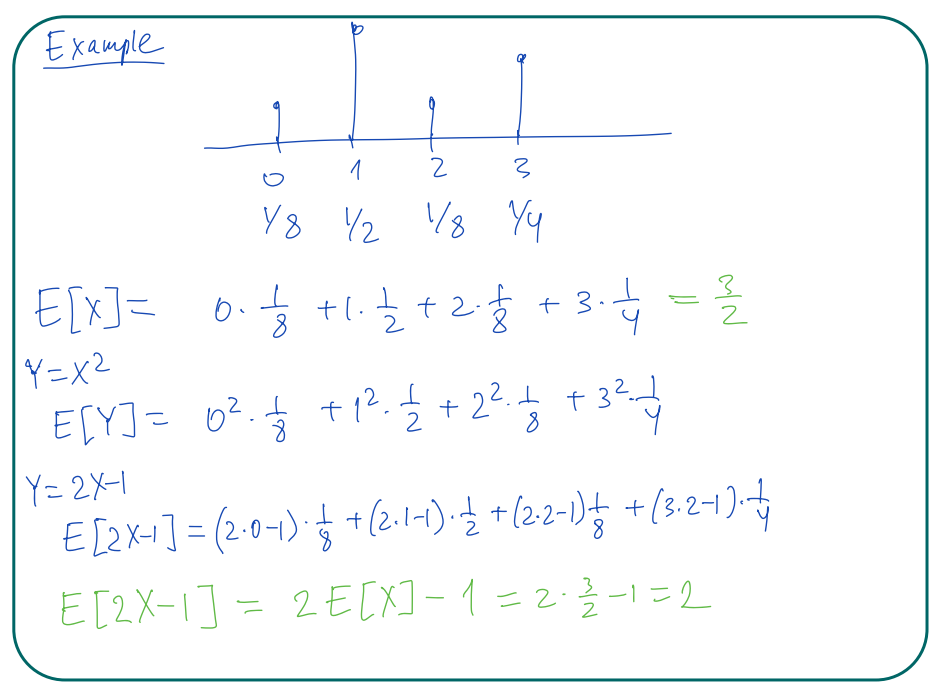 Example
0 1 2 3
1/8 1/2 1/8 1/4
E[X] = 0 · 1/8 + 1 · 1/2 + 2 · 1/8 + 3 · 1/4 = 3/2
Y = X²
E[Y] = 0² · 1/8 + 1² · 1/2 + 2² · 1/8 + 3² · 1/4
Y = 2X-1
E[2X-1] = (2·0-1) · 1/8 + (2·1-1) · 1/2 + (2·2-1) 1/8 + (3·2-1) · 1/4
E[2X-1] = 2E[X] - 1 = 2 · 3/2 - 1 = 2